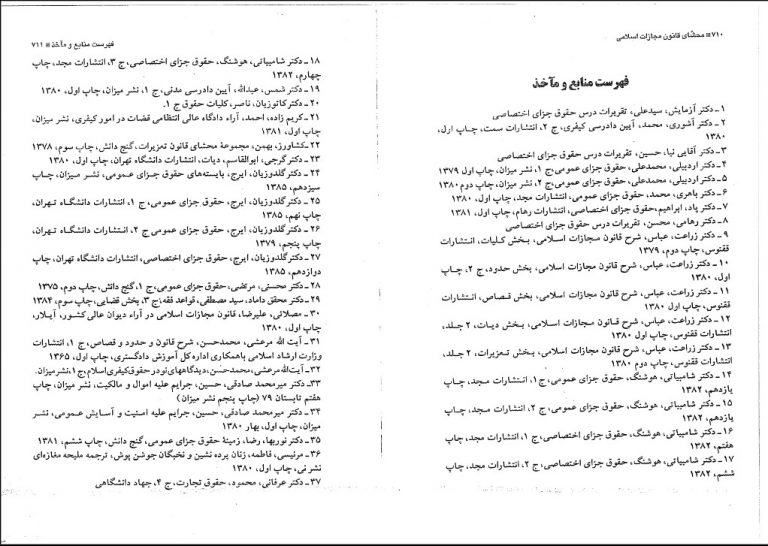 ۷۱۰ ≡ محشّای قانون مجازات اسلامی
فهرست منابع و مآخذ
۱ـ دکتر آزمایش، سیدعلی، تقریرات درس حقوق جزای اختصاصی
۲ـ دکتر آشوری، محمد، آیین دادرسی کیفری، ج ۲، انتشارات سمت، چاپ اول،
۱۳۸۰
۳ـ دکتر آقایی نیا، حسین، تقریرات درس حقوق جزای اختصاصی
۴ـ دکتر اردبیلی، محمدعلی، حقوق جزای عمومی، ج ۱، نشر میزان، چاپ اول ۱۳۷۹
۵ـ دکتر اردبیلی، محمدعلی، حقوق جزای عمومی، ج ۲، نشر میزان، چاپ دوم ۱۳۸۰
۶ـ دکتر باهری، محمد، حقوق جزای عمومی، انتشارات مجد، چاپ اول، ۱۳۸۰
۷ـ دکتر پاد، ابراهیم، حقوق جزای اختصاصی، انتشارات رهام، چاپ اول، ۱۳۸۱
۸ـ دکتر رهامی، محسن، تقریرات درس حقوق جزای اختصاصی
۹ـ دکتر زراعت، عباس، شرح قانون مجازات اسلامی، بخش کلیات، انتشارات
ققنوس، چاپ دوم، ۱۳۷۹
۱۰ـ دکتر زراعت، عباس، شرح قانون مجازات اسلامی، بخش حدود، ج ۲، چاپ
اول، ۱۳۸۰
۱۱ـ دکتر زراعت، عباس، شرح قانون مجازات اسلامی، بخش قصاص، انتشارات
ققنوس، چاپ اول ۱۳۸۰
۱۲ـ دکتر زراعت، عباس، شرح قانون مجازات اسلامی، بخش دیات، ۲ جلد،
انتشارات ققنوس، چاپ اول ۱۳۸۰
۱۳ـ دکتر زراعت، عباس، شرح قانون مجازات اسلامی، بخش تعزیرات، ۲ جلد،
انتشارات ققنوس، چاپ دوم ۱۳۸۰
۱۴ـ دکتر شامبیاتی، هوشنگ، حقوق جزای عمومی، ج ۱، انتشارات مجد، چاپ
یازدهم، ۱۳۸۲
۱۵ـ دکتر شامبیاتی، هوشنگ، حقوق جزای عمومی، ج ۲، انتشارات مجد، چاپ
یازدهم، ۱۳۸۲
۱۶ـ دکتر شامبیاتی، هوشنگ، حقوق جزای اختصاصی، ج ۱، انتشارات مجد، چاپ
هفتم، ۱۳۸۲
۱۷ـ دکتر شامبیاتی، هوشنگ، حقوق جزای اختصاصی، ج ۲، انتشارات مجد، چاپ
ششم، ۱۳۸۲
فهرست منابع و مآخذ ≡ ۷۱۱
۱۸ـ دکتر شامبیاتی، هوشنگ، حقوق جزای اختصاصی، ج ۳، انتشارات مجد، چاپ
چهارم، ۱۳۸۲
۱۹ـ دکتر شمس، عبدالله، آیین دادرسی مدنی، ج ۱، نشر میزان، چاپ اول، ۱۳۸۰
۲۰ـ دکتر کاتوزیان، ناصر، کلیات حقوق ج ۱.
۲۱ـ کریم زاده، احمد، آراء دادگاه عالی انتظامی قضات در امور کیفری، نشر میزان،
چاپ اول، ۱۳۸۱
۲۲ـ کشاورز، بهمن، مجموعۀ محشای قانون تعزیرات، گنج دانش، چاپ سوم، ۱۳۷۸
۲۳ـ دکتر گرجی، ابوالقاسم، دیات، انتشارات دانشگاه تهران، چاپ اول، ۱۳۸۰
۲۴ـ دکتر گلدوزیان، ایرج، بایسته‌های حقوق جزای عمومی، نشر میزان، چاپ
سیزدهم، ۱۳۸۵
۲۵ـ دکتر گلدوزیان، ایرج، حقوق جزای عمومی، ج ۱، انتشارات دانشگاه تهران،
چاپ نهم، ۱۳۸۵
۲۶ـ دکتر گلدوزیان، ایرج، حقوق جزای عمومی، ج ۲، انتشارات دانشگاه تهران،
چاپ پنجم، ۱۳۷۹
۲۷ـ دکتر گلدوزیان، ایرج، حقوق جزای اختصاصی، انتشارات دانشگاه تهران، چاپ
دوازدهم، ۱۳۸۵
۲۸ـ دکتر محسنی، مرتضی، حقوق جزای عمومی، ج ۱، گنج دانش، چاپ دوم، ۱۳۷۵
۲۹ـ دکتر محقق داماد، سید مصطفی، قواعد فقه، ج ۳، بخش قضایی، چاپ سوم، ۱۳۸۴
۳۰ـ مصلائی، علیرضا، قانون مجازات اسلامی در آراء دیوان عالی کشور، آیلار،
چاپ اول، ۱۳۸۰
۳۱ـ آیت الله مرعشی، محمدحسن، شرح قانون و حدود و قصاص، ج ۱، انتشارات
وزارت ارشاد اسلامی باهمکاری اداره کل آموزش دادگستری، چاپ اول، ۱۳۶۵
۳۲ـ آیت‌الله مرعشی، محمدحسن، دیدگاههای نو در حقوق کیفری اسلام، ج ۱، نشر میزان
۳۳ـ دکتر میرمحمد صادقی، حسین، جرایم علیه اموال و مالکیت، نشر میزان، چاپ
هفتم تابستان ۷۹ (چاپ پنجم نشر میزان)
۳۴ـ دکتر میرمحمد صادقی، حسین، جرایم علیه امنیت و آسایش عمومی، نشر
میزان، چاپ اول، بهار ۱۳۸۰
۳۵ـ دکتر نوربها، رضا، زمینۀ حقوق جزای عمومی، گنج دانش، چاپ ششم، ۱۳۸۱
۳۶ـ مرنیسی، فاطمه، زنان پرده نشین و نخبگان جوشن پوش، ترجمه ملیحه مغازه‌ای
نشر نی، چاپ اول، ۱۳۸۰
۳۷ـ دکتر عرفانی، محمود، حقوق تجارت، ج ۴، جهاد دانشگاهی